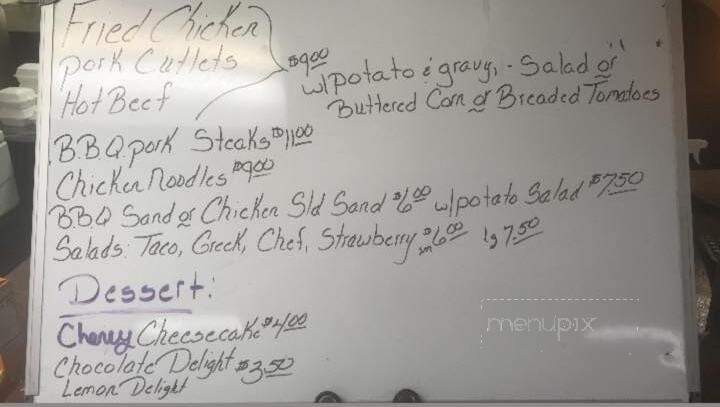 Fried Chicken
Pork Cutlets
Hot Beef
$9.00
w/potato & gravy, - Salad or
Buttered Corn or Breaded Tomatoes
B.B.Q. pork Steaks $11.00
Chicken Noodles $9.00
BBQ Sand or Chicken Sld Sand $6.00 w/potato Salad $7.50
Salads: Taco, Greek, Chef, Strawberry sm $6.00 lg 7.50
Dessert:
Cherry Cheesecake $4.00
Chocolate Delight $3.50
Lemon Delight
menupix